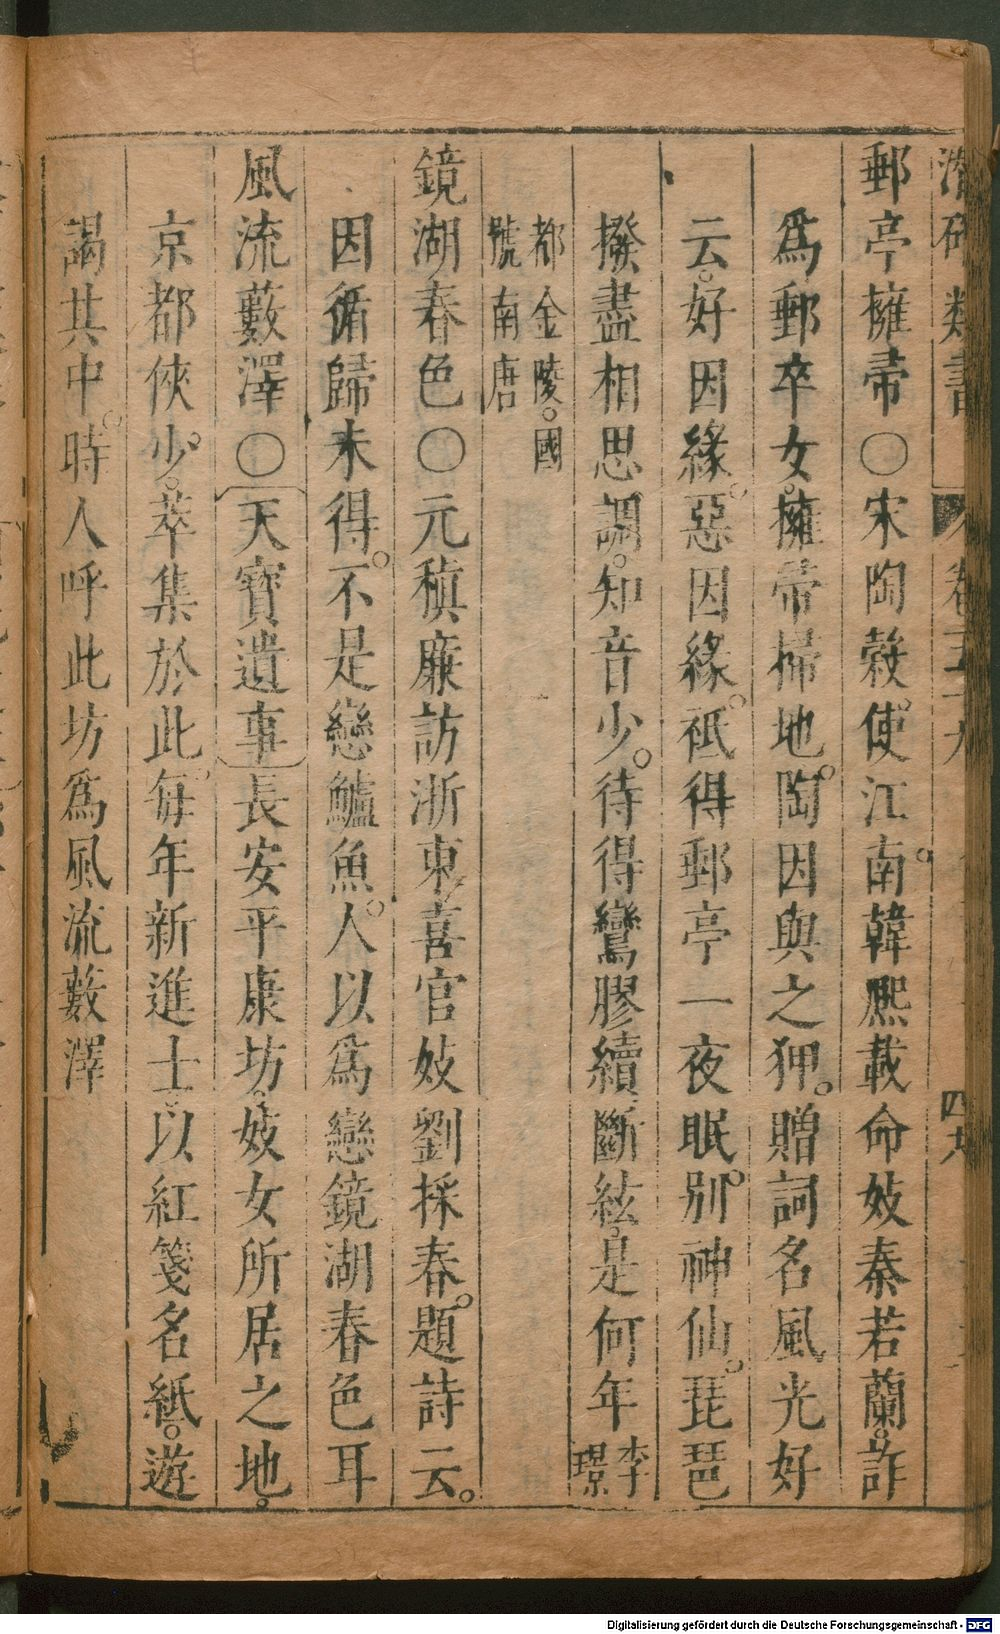 潛确類書 卷五十九 四十八
郵亭擁帚〇宋陶穀使江南。韓熙載命妓秦若蘭。詐
爲郵卒女。擁帚掃地。陶因與之狎。贈詞名風光好
云。好因緣。惡因緣。祇得郵亭一夜眠。別神仙。琵琶
撥盡相思調。知音少。待得鸞膠續斷絃。是何年 李璟
都金陵。國
號南唐
鏡湖春色〇元稹廉訪浙東喜官妓劉採春。題詩云。
因循歸未得。不是戀鱸魚。人以爲戀鏡湖春色耳
風流藪澤〇天寶遺事長安平康坊。妓女所居之地。
京都俠少。萃集於此。每年新進士。以紅箋名紙。遊
謁其中。時人呼此坊爲風流藪澤
Digitalisierung gefördert durch die Deutsche Forschungsgemeinschaft - DFG